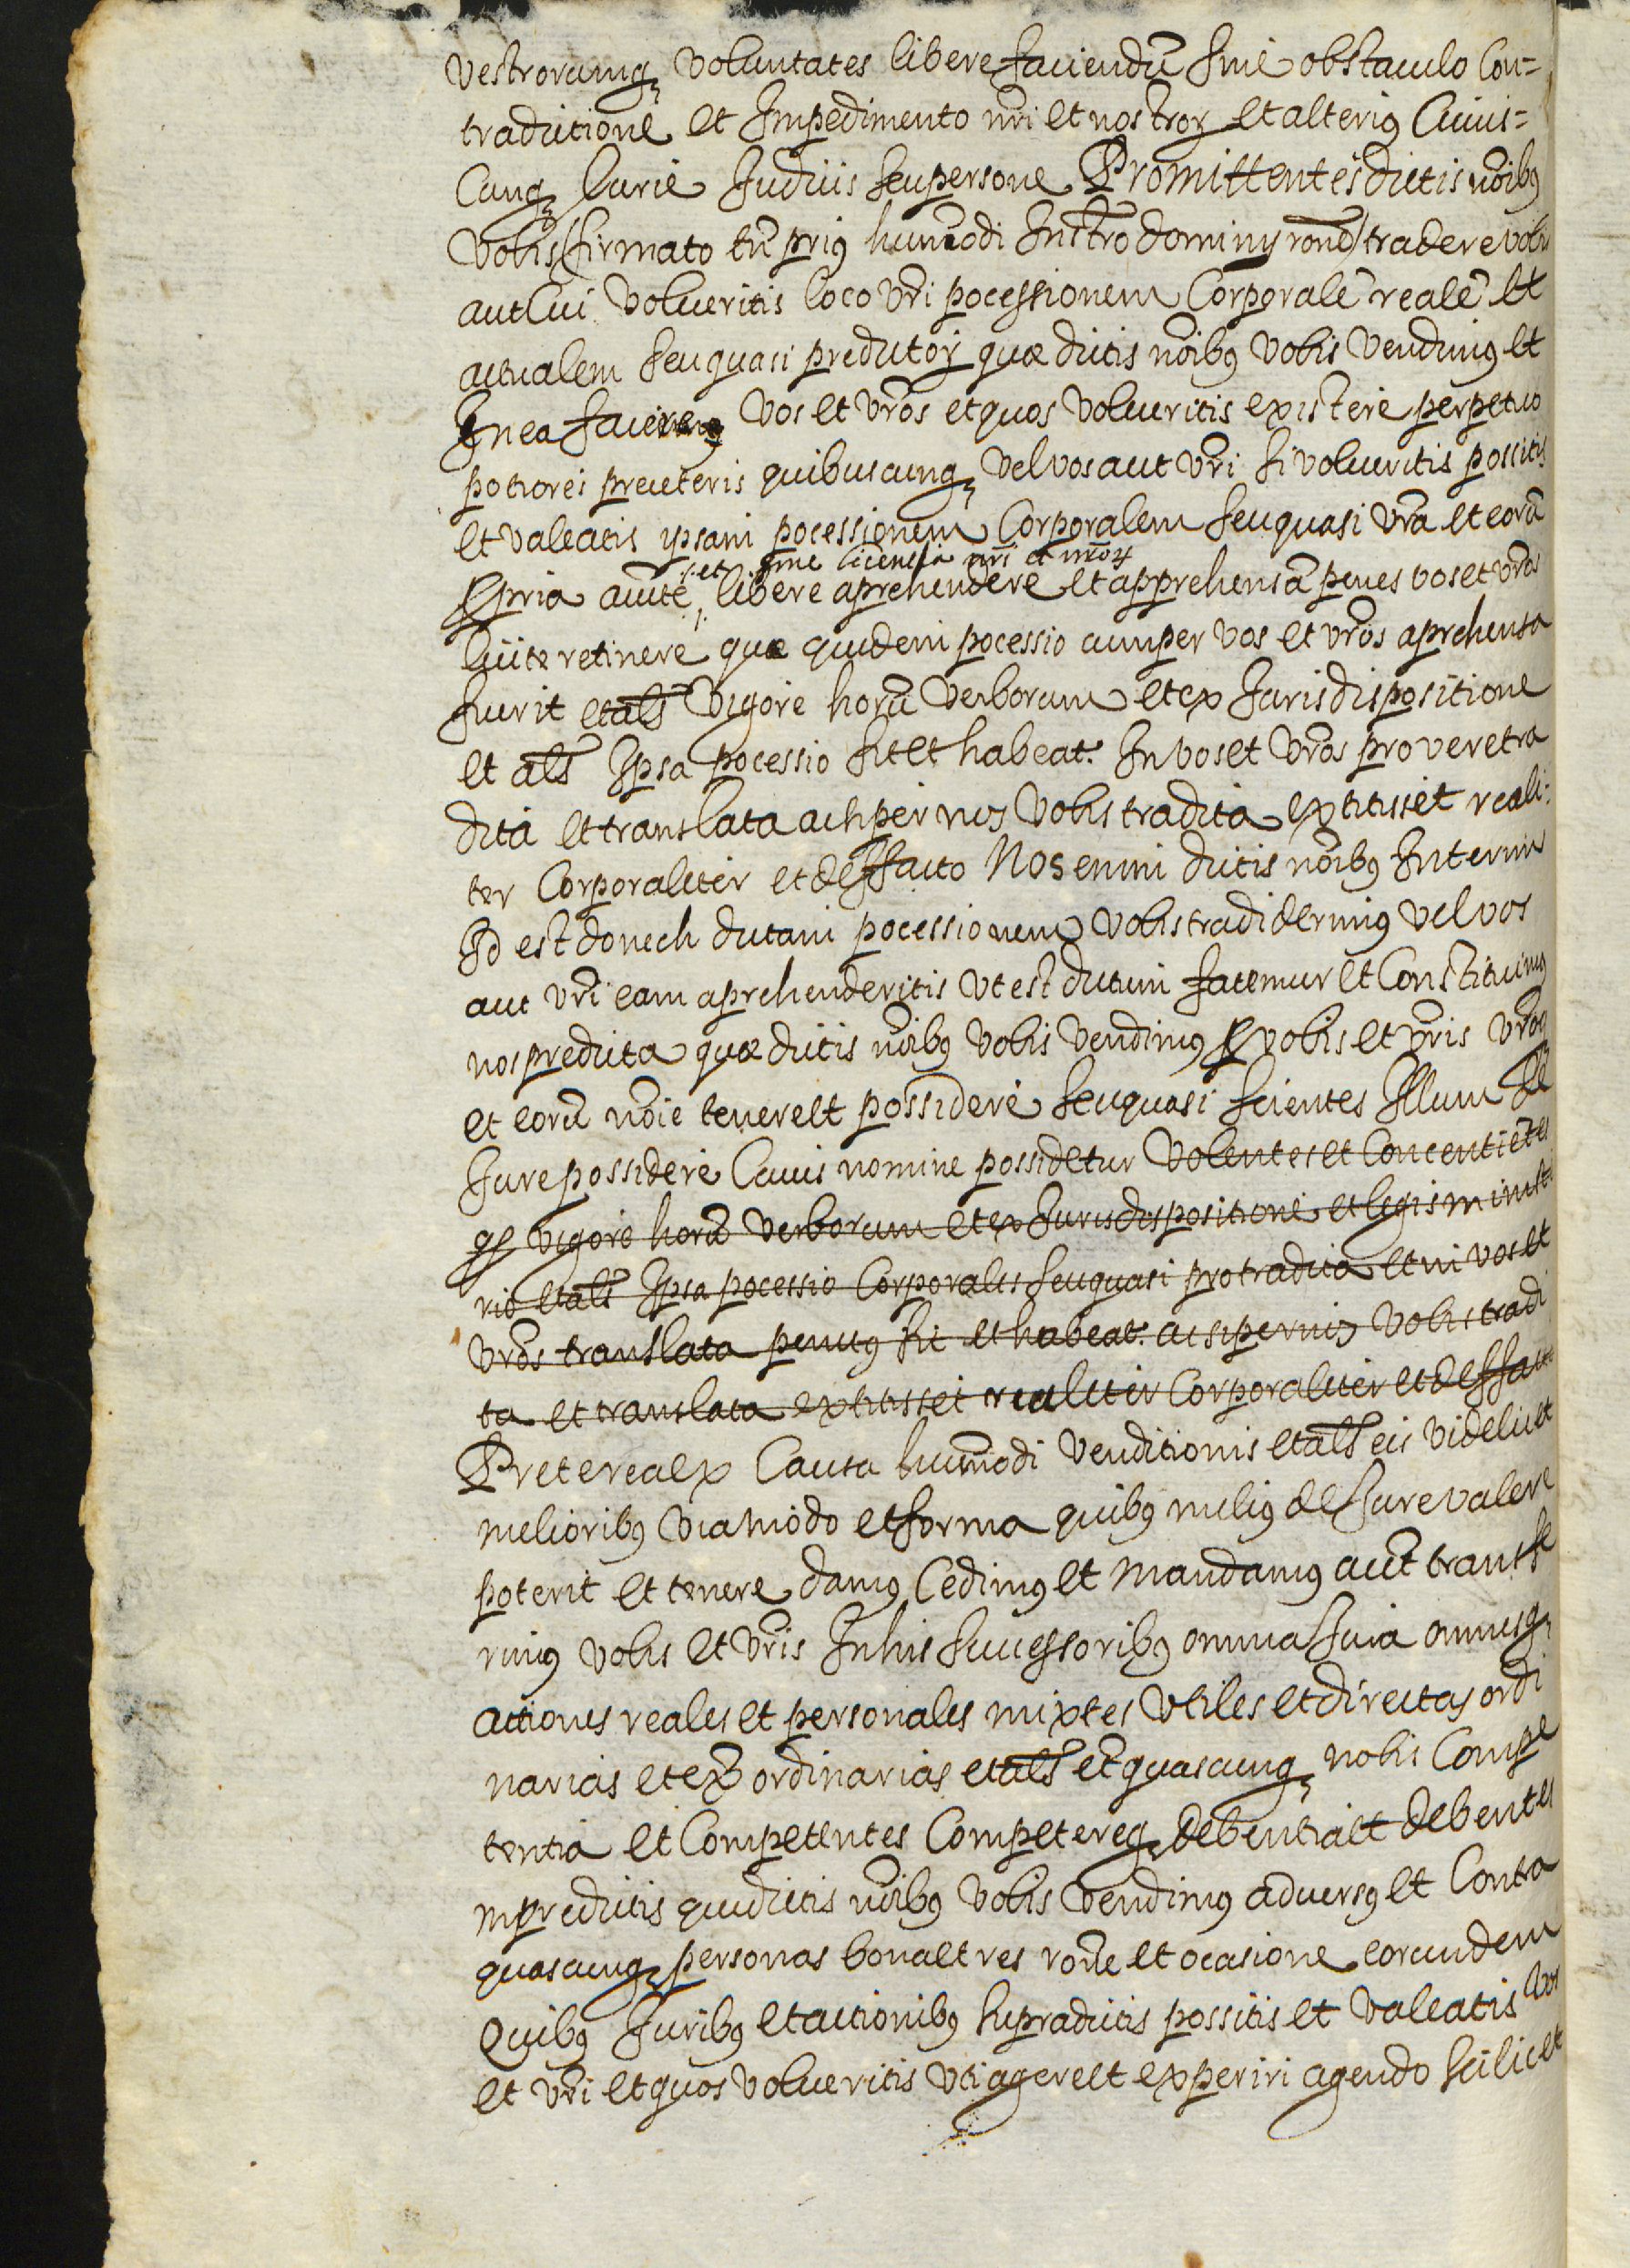 vestrorumq3 voluntates libere faciendũ sine obstaculo Con=
tradictione et Impedimento nr̃i et nostror̃ et alterius Cuius=
Cunq3 Curie Judicis seu persone Promittentes dictis nõibus
vobis (firmato tñ prius huiusmõdi Instr̃o dominij rõne) tradere vobis
aut Cui volueritis loco vr̃i pocessionem Corporalẽ realẽ et
actualem seu quasi predictor̃ quæ dictis nõibus vobis vendimus et
In ea faciemus vos et vr̃os et quos volueritis existere perpetuo
potiores preceteris quibuscunq3 vel vos aut vr̃i si volueritis possitis
et valeatis ypsam pocessionem Corporalem seu quasi vr̃a et eorũ
./. et sine licentia nr̃i et nr̃or̃
ppria auc̃te ./. libere aprehendere et apprehensã penes vos et vr̃os
licite retinere quæ quidem pocessio cum per vos et vr̃os aprehensa
fuerit et als̃ vigore horũ verborum et ex Juris dispositione
et als̃ Ipsa pocessio sit et habeat.r In vos et vr̃os pro vere tra
dita et translata ac si per nos vobis tradita extitisset reali:
ter Corporaliter et de ffacto Nos enim dictis nõibus Interim
Id est donech dictam pocessionem vobis tradiderimus vel vos
aut vr̃i eam aprehenderitis Vt est dictum fatemur et Constituimus
nos predicta quæ dictis nõibus vobis vendimus p vobis et vr̃is vr̃oq3
et eorũ nõie tenere et possidere seu quasi scientes Illum de
Jure possidere Cuius nomine possidetur volentes et Concentiẽtes
qp vigore horũ verborum et ex Juris dispositione et legis minist
rio et als̃ Ipsa pocessio Corporalis seu quasi pro tradita et in vos et
vr̃os translata penitus sit et habeat.r ac si per nos vobis tradi
ta et translata extitisset realiter Corporaliter et de ffacto
Preterea ex Causa huiusmõdi venditionis et als̃ eis videlicet
melioribus via modo et forma quibus melius de Jure valere
poterit et tenere damus Cedimus et mandamus aut̃ transfe
rimus vobis et vr̃is In his successoribus omnia Jura omnesq3
actiones reales et personales mixtes Vtiles et directas ordi
narias et exõrdinarias et als̃ et quascunq3 nobis Compe
tentia et Competentes Competereq3 debentia et debentes
in predictis qui dictis nõibus vobis vendimus adversus et Contra
quascunq3 personas bona et res rõne et ocasione eorundem
Quibus Juribus et actionibus supradictis possitis et valeatis vos
et vr̃i et quos volueritis Vti agere et experiri agendo scilicet